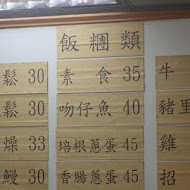 飯糰類
鬆 30
素食 35
牛
鬆 30
吻仔魚 40
豬里
燥 33
培根蔥蛋 45
雞
鰻 30
香腸蔥蛋 45
招